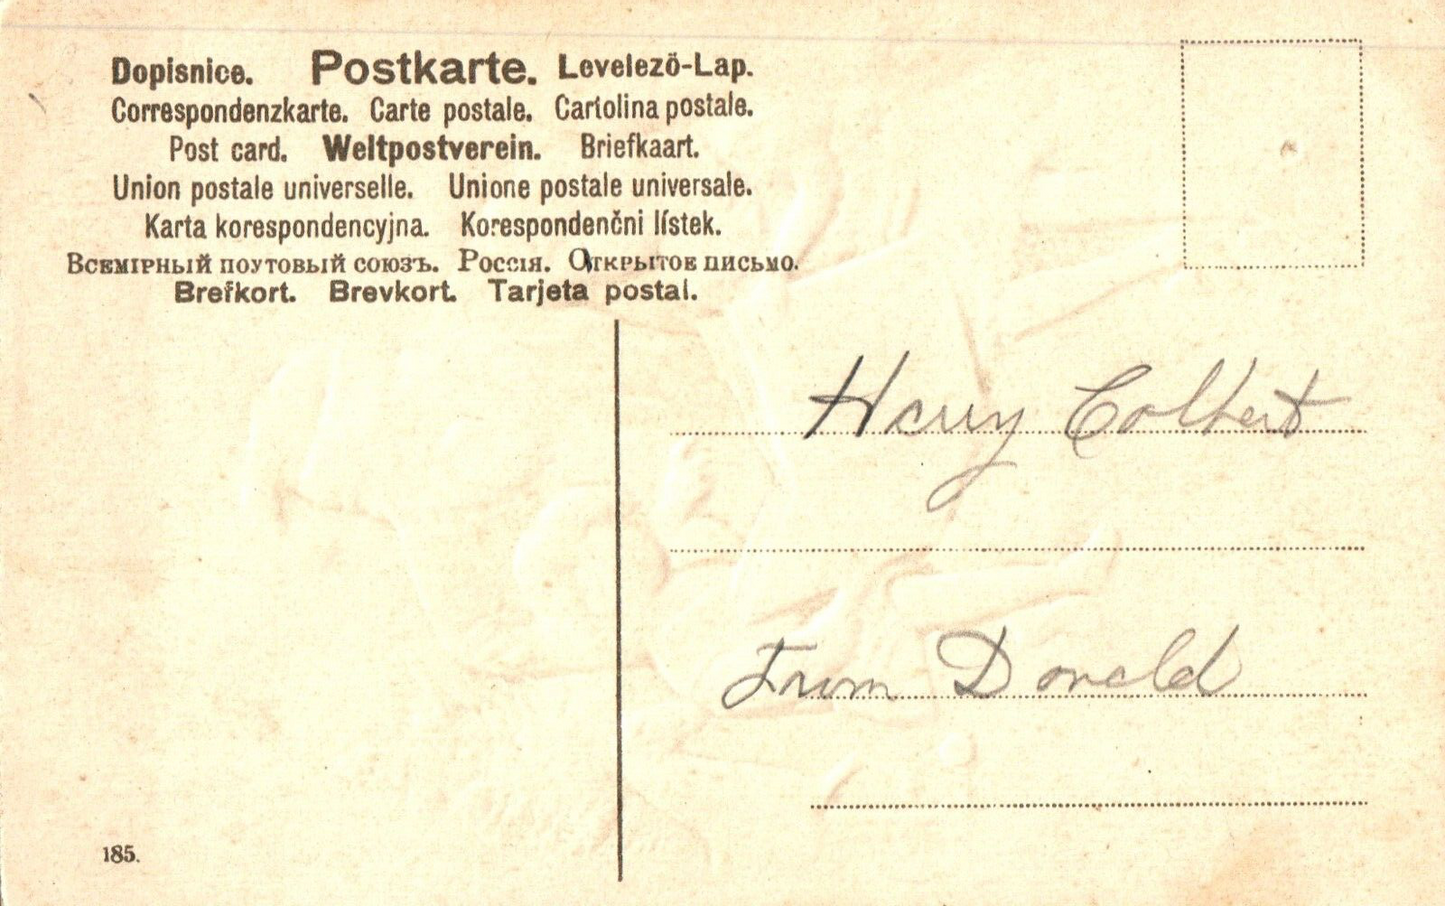 Dopisnice. Postkarte. Levelező-Lap.
Correspondenzkarte. Carte postale. Cartolina postale.
Post card. Weltpostverein. Briefkaart.
Union postale universelle. Unione postale universale.
Karta korespondencyjna. Korespondenčni lístek.
Всемірный поутовый союзъ. Россія. Открытое письмо.
Brefkort. Brevkort. Tarjeta postal.
Harry Colbert
From Donald
185.